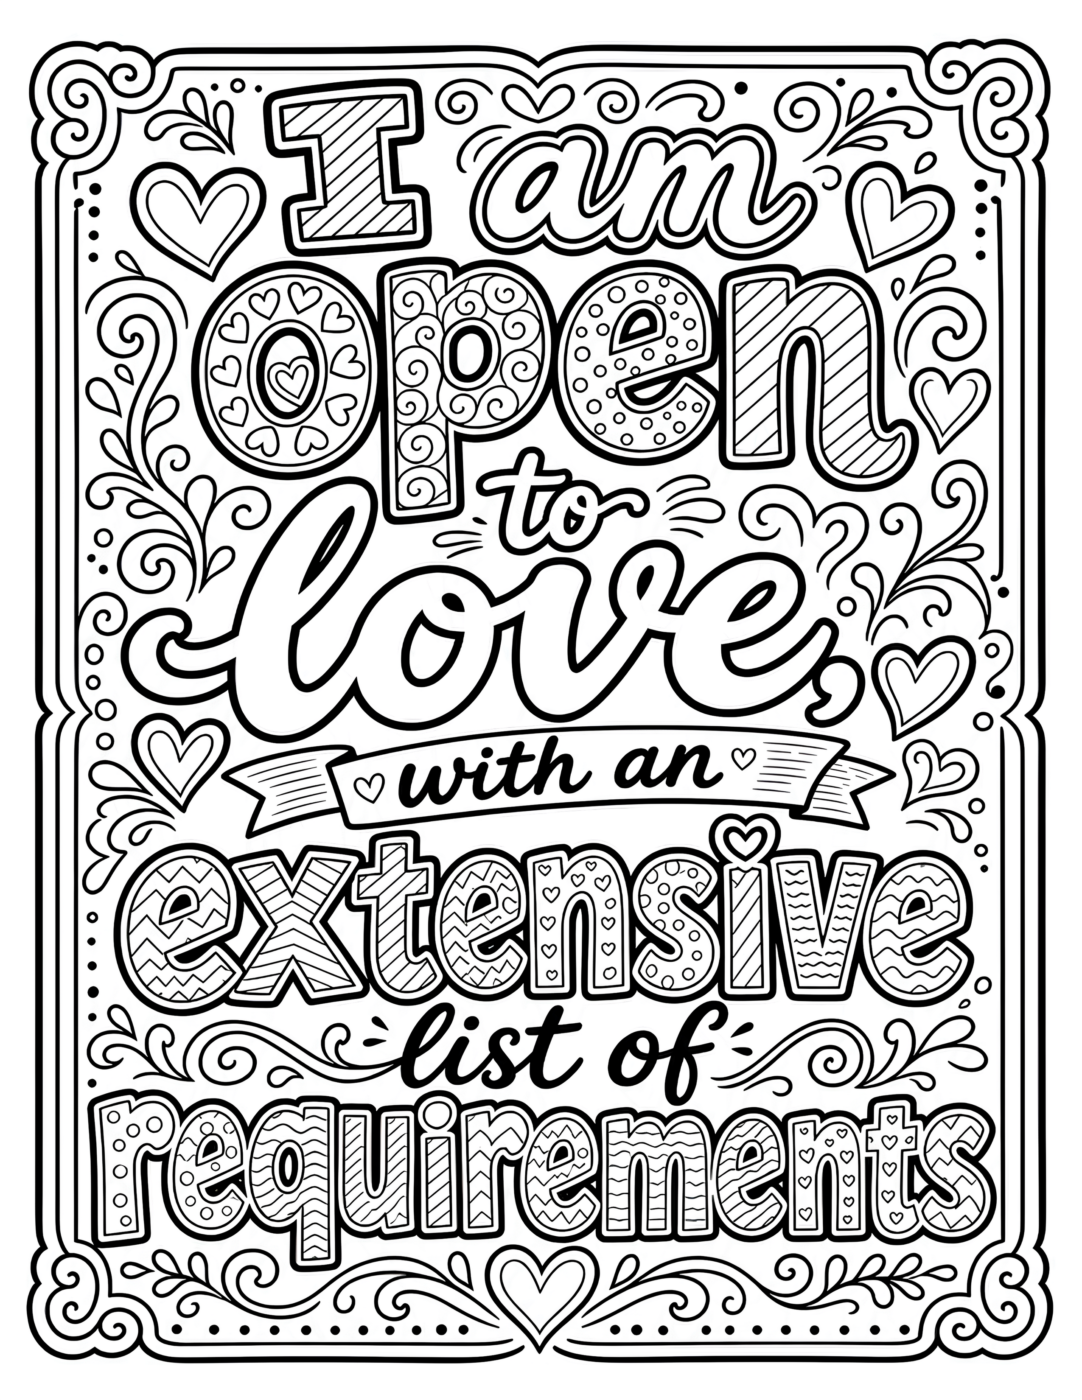 I am
open
to
love,
with an
extensive
list of
requirements